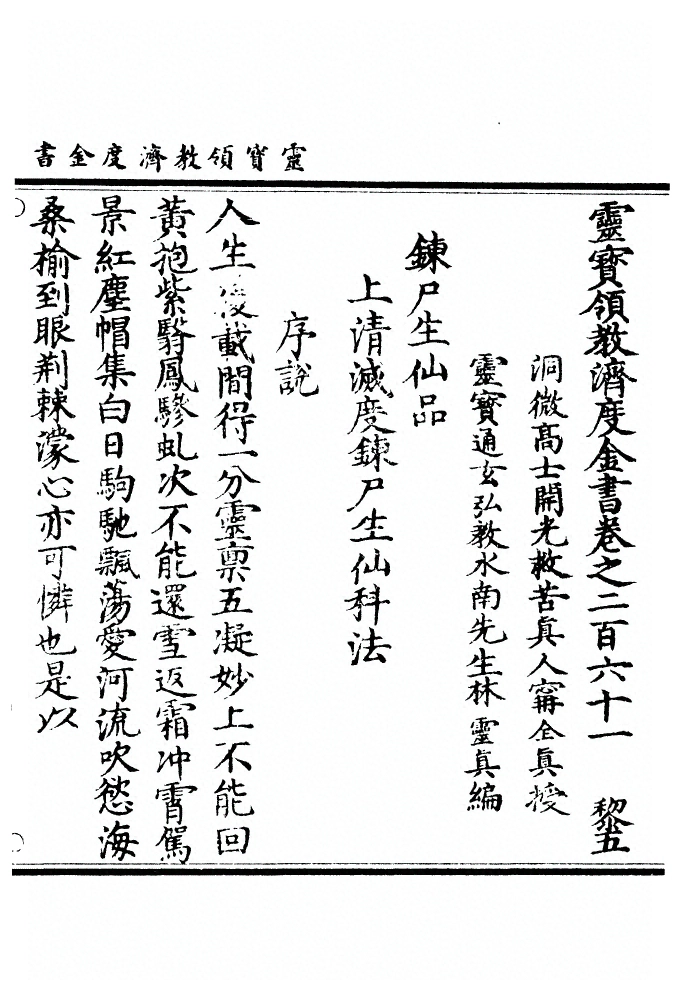 靈寶領教濟度金書
靈寶領教濟度金書卷之二百六十一 黎五
洞微高士開光救苦眞人甯全眞授
靈寶通玄弘教水南先生林靈眞編
鍊尸生仙品
上清滅度鍊尸生仙科法
序說
人生覆載間得一分靈禀五凝妙上不能回
黃抱紫翳鳳驂虬次不能還雪返霜冲霄駕
景紅塵帽集白日駒馳飄蕩愛河流吹慾海
桑榆到眼荆棘濛心亦可憐也是以